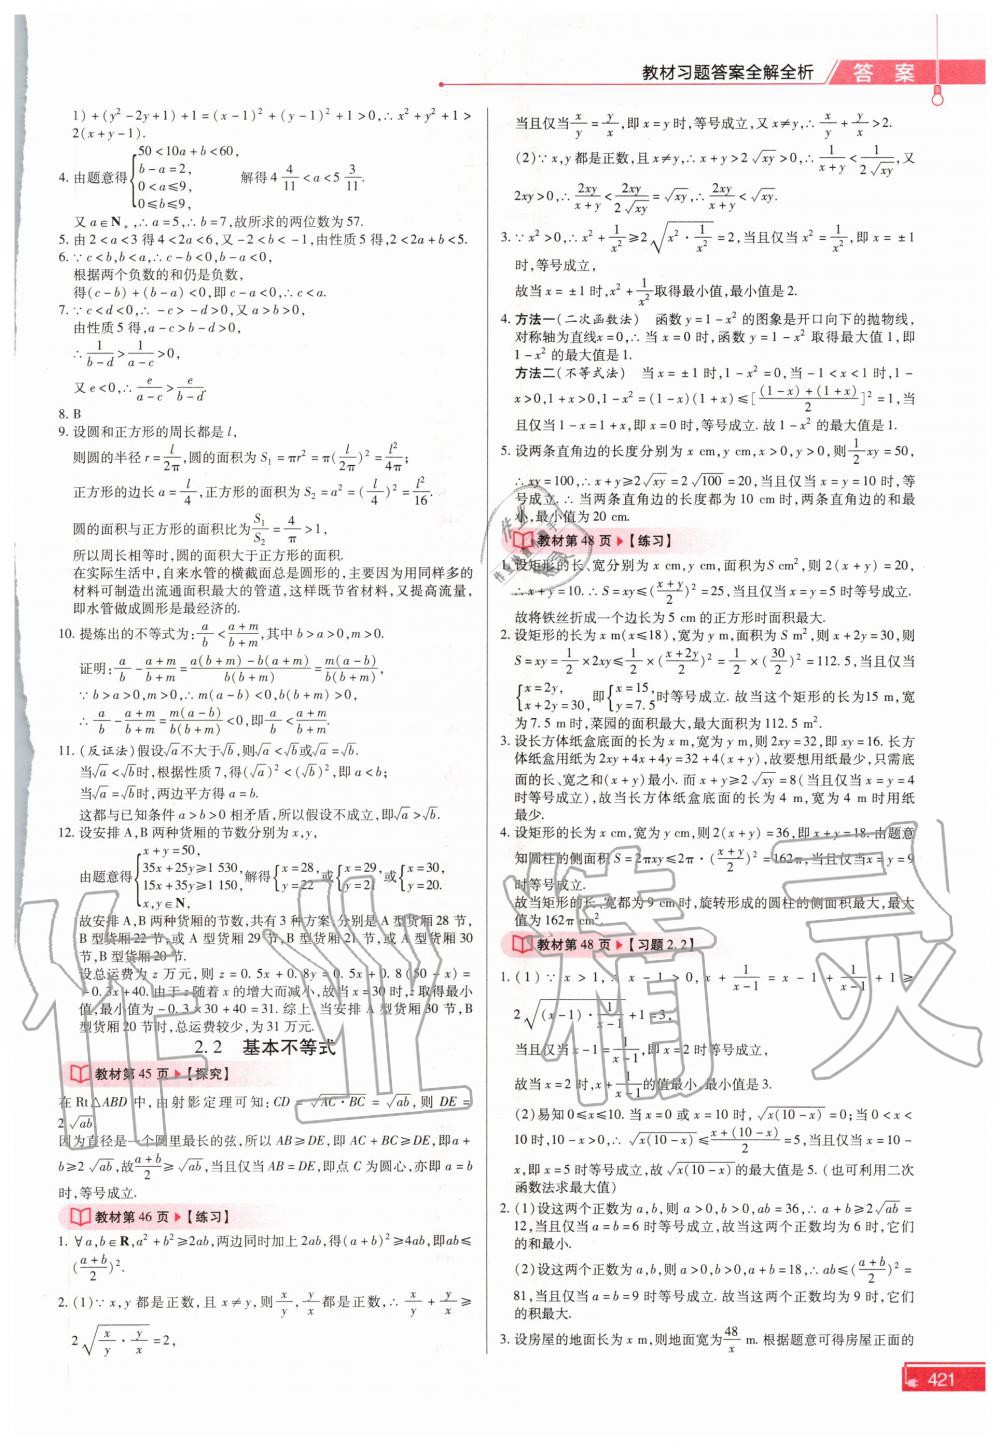 教材习题答案全解全析 答案
1)+(y²-2y+1)+1=(x-1)²+(y-1)²+1>0,∴x²+y²+1>
2(x+y-1).
4. 由题意得{50<10a+b<60, b-a=2, 0<a≤9, 0≤b≤9, 解得4 4/11<a<5 3/11.
又a∈N₊,∴a=5,∴b=7,故所求的两位数为57.
5. 由2<a<3得4<2a<6,又-2<b<-1,由性质5得,2<2a+b<5.
6. ∵c<b,b<a,∴c-b<0,b-a<0,
根据两个负数的和仍是负数,
得(c-b)+(b-a)<0,即c-a<0,∴c<a.
7. ∵c<d<0,∴-c>-d>0,又a>b>0,
由性质5得,a-c>b-d>0,
∴1/(b-d)>1/(a-c)>0,
又e<0,∴e/(a-c)>e/(b-d).
8. B
9. 设圆和正方形的周长都是l,
则圆的半径r=l/2π,圆的面积为S₁=πr²=π(l/2π)²=l²/4π;
正方形的边长a=l/4,正方形的面积为S₂=a²=(l/4)²=l²/16.
圆的面积与正方形的面积比为S₁/S₂=4/π>1,
所以周长相等时,圆的面积大于正方形的面积.
在实际生活中,自来水管的横截面总是圆形的,主要因为用同样多的
材料可制造出流通面积最大的管道,这样既节省材料,又提高流量,
即水管做成圆形是最经济的.
10. 提炼出的不等式为:a/b<(a+m)/(b+m),其中b>a>0,m>0.
证明:a/b-(a+m)/(b+m)=[a(b+m)-b(a+m)]/[b(b+m)]=m(a-b)/[b(b+m)],
∵b>a>0,m>0,∴m(a-b)<0,b(b+m)>0,
∴a/b-(a+m)/(b+m)=m(a-b)/[b(b+m)]<0,即a/b<(a+m)/(b+m).
11. (反证法)假设√a不大于√b,则√a<√b或√a=√b.
当√a<√b时,根据性质7,得(√a)²<(√b)²,即a<b;
当√a=√b时,两边平方得a=b.
这都与已知条件a>b>0相矛盾,所以假设不成立,即√a>√b.
12. 设安排A,B两种货厢的节数分别为x,y,
由题意得{x+y=50, 35x+25y≥1 530, 15x+35y≥1 150, x,y∈N, 解得{x=28, y=22或{x=29, y=21或{x=30, y=20.
故安排A,B两种货厢的节数,共有3种方案:分别是A型货厢28节,
B型货厢22节,或A型货厢29节,B型货厢21节,或A型货厢30
节,B型货厢20节.
设总运费为z万元,则z=0.5x+0.8y=0.5x+0.8(50-x)=
-0.3x+40.由于z随着x的增大而减小,故当x=30时,z取得最小
值,最小值为-0.3×30+40=31.综上,当安排A型货厢30节,B
型货厢20节时,总运费较少,为31万元.
2.2 基本不等式
教材第45页▶【探究】
在Rt△ABD中,由射影定理可知:CD=√(AC·BC)=√(ab),则DE=
2√(ab)
因为直径是一个圆里最长的弦,所以AB≥DE,即AC+BC≥DE,即a+
b≥2√(ab),故(a+b)/2≥√(ab),当且仅当AB=DE,即点C为圆心,亦即a=b
时,等号成立.
教材第46页▶【练习】
1. ∀a,b∈R,a²+b²≥2ab,两边同时加上2ab,得(a+b)²≥4ab,即ab≤
((a+b)/2)².
2. (1)∵x,y都是正数,且x≠y,则x/y,y/x都是正数,∴x/y+y/x≥
2√(x/y·y/x)=2,
当且仅当x/y=y/x,即x=y时,等号成立,又x≠y,∴x/y+y/x>2.
(2)∵x,y都是正数,且x≠y,∴x+y>2√(xy)>0,∴1/(x+y)<1/(2√(xy)),又
2xy>0,∴2xy/(x+y)<2xy/(2√(xy))=√(xy),∴2xy/(x+y)<√(xy).
3. ∵x²>0,∴x²+1/x²≥2√(x²·1/x²)=2,当且仅当x²=1/x²,即x=±1
时,等号成立,
故当x=±1时,x²+1/x²取得最小值,最小值是2.
4. 方法一(二次函数法) 函数y=1-x²的图象是开口向下的抛物线,
对称轴为直线x=0,∴当x=0时,函数y=1-x²取得最大值1,即
1-x²的最大值是1.
方法二(不等式法) 当x=±1时,1-x²=0,当-1<x<1时,1-
x>0,1+x>0,1-x²=(1-x)(1+x)≤[((1-x)+(1+x))/2]²=1,当
且仅当1-x=1+x,即x=0时,等号成立.故1-x²的最大值是1.
5. 设两条直角边的长度分别为x cm,y cm,x>0,y>0,则1/2xy=50,
∴xy=100,∴x+y≥2√(xy)=2√100=20,当且仅当x=y=10时,等
号成立.∴当两条直角边的长度都为10 cm时,两条直角边的和最
小,最小值为20 cm.
教材第48页▶【练习】
1. 设矩形的长、宽分别为x cm,y cm,面积为S cm²,则2(x+y)=20,
∴x+y=10.∴S=xy≤((x+y)/2)²=25,当且仅当x=y=5时等号成立.
故将铁丝折成一个边长为5 cm的正方形时面积最大.
2. 设矩形的长为x m(x≤18),宽为y m,面积为S m²,则x+2y=30,则
S=xy=1/2×2xy≤1/2×((x+2y)/2)²=1/2×(30/2)²=112.5,当且仅当
{x=2y, x+2y=30,即{x=15, y=7.5时等号成立.故当这个矩形的长为15 m,宽
为7.5 m时,菜园的面积最大,最大面积为112.5 m².
3. 设长方体纸盒底面的长为x m,宽为y m,则2xy=32,即xy=16.长方
体纸盒用纸为2xy+4x+4y=32+4(x+y),故要想用纸最少,只需底
面的长、宽之和(x+y)最小.而x+y≥2√(xy)=8(当且仅当x=y=4
时等号成立),故当长方体纸盒底面的长为4 m,宽为4 m时用纸
最少.
4. 设矩形的长为x cm,宽为y cm,则2(x+y)=36,即x+y=18.由题意
知圆柱的侧面积S=2πxy≤2π·((x+y)/2)²=162π,当且仅当x=y=9
时等号成立.
故当矩形的长、宽都为9 cm时,旋转形成的圆柱的侧面积最大,最
大值为162π cm².
教材第48页▶【习题2.2】
1. (1)∵x>1,∴x-1>0,x+1/(x-1)=x-1+1/(x-1)+1≥
2√((x-1)·1/(x-1))+1=3,
当且仅当x-1=1/(x-1),即x=2时等号成立.
故当x=2时,x+1/(x-1)的值最小,最小值是3.
(2)易知0≤x≤10.当x=0或x=10时,√(x(10-x))=0;当0<x<
10时,10-x>0,∴√(x(10-x))≤(x+(10-x))/2=5,当且仅当x=10-
x,即x=5时等号成立,故√(x(10-x))的最大值是5.(也可利用二次
函数法求最大值)
2. (1)设这两个正数为a,b,则a>0,b>0,ab=36,∴a+b≥2√(ab)=
12,当且仅当a=b=6时等号成立,故当这两个正数均为6时,它们
的和最小.
(2)设这两个正数为a,b,则a>0,b>0,a+b=18,∴ab≤((a+b)/2)²=
81,当且仅当a=b=9时等号成立.故当这两个正数均为9时,它们
的积最大.
3. 设房屋的地面长为x m,则地面宽为48/x m.根据题意可得房屋正面的
421
作业精灵